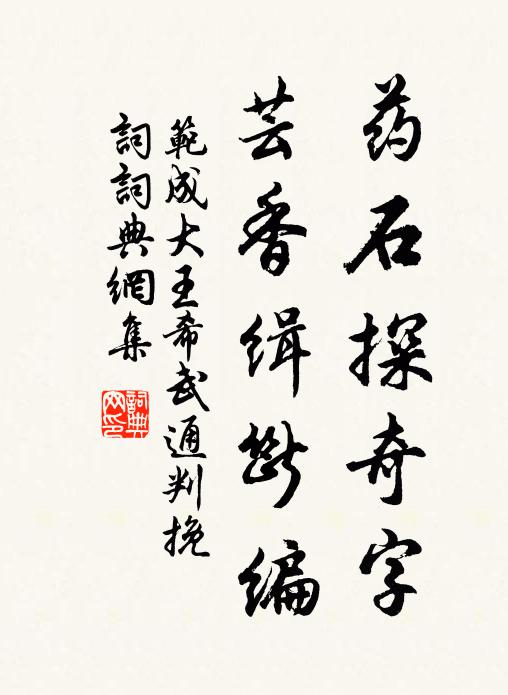 药石探奇字
芸香缉断编
範成大王希武通判挽
詞詞典網集
詞典
网印